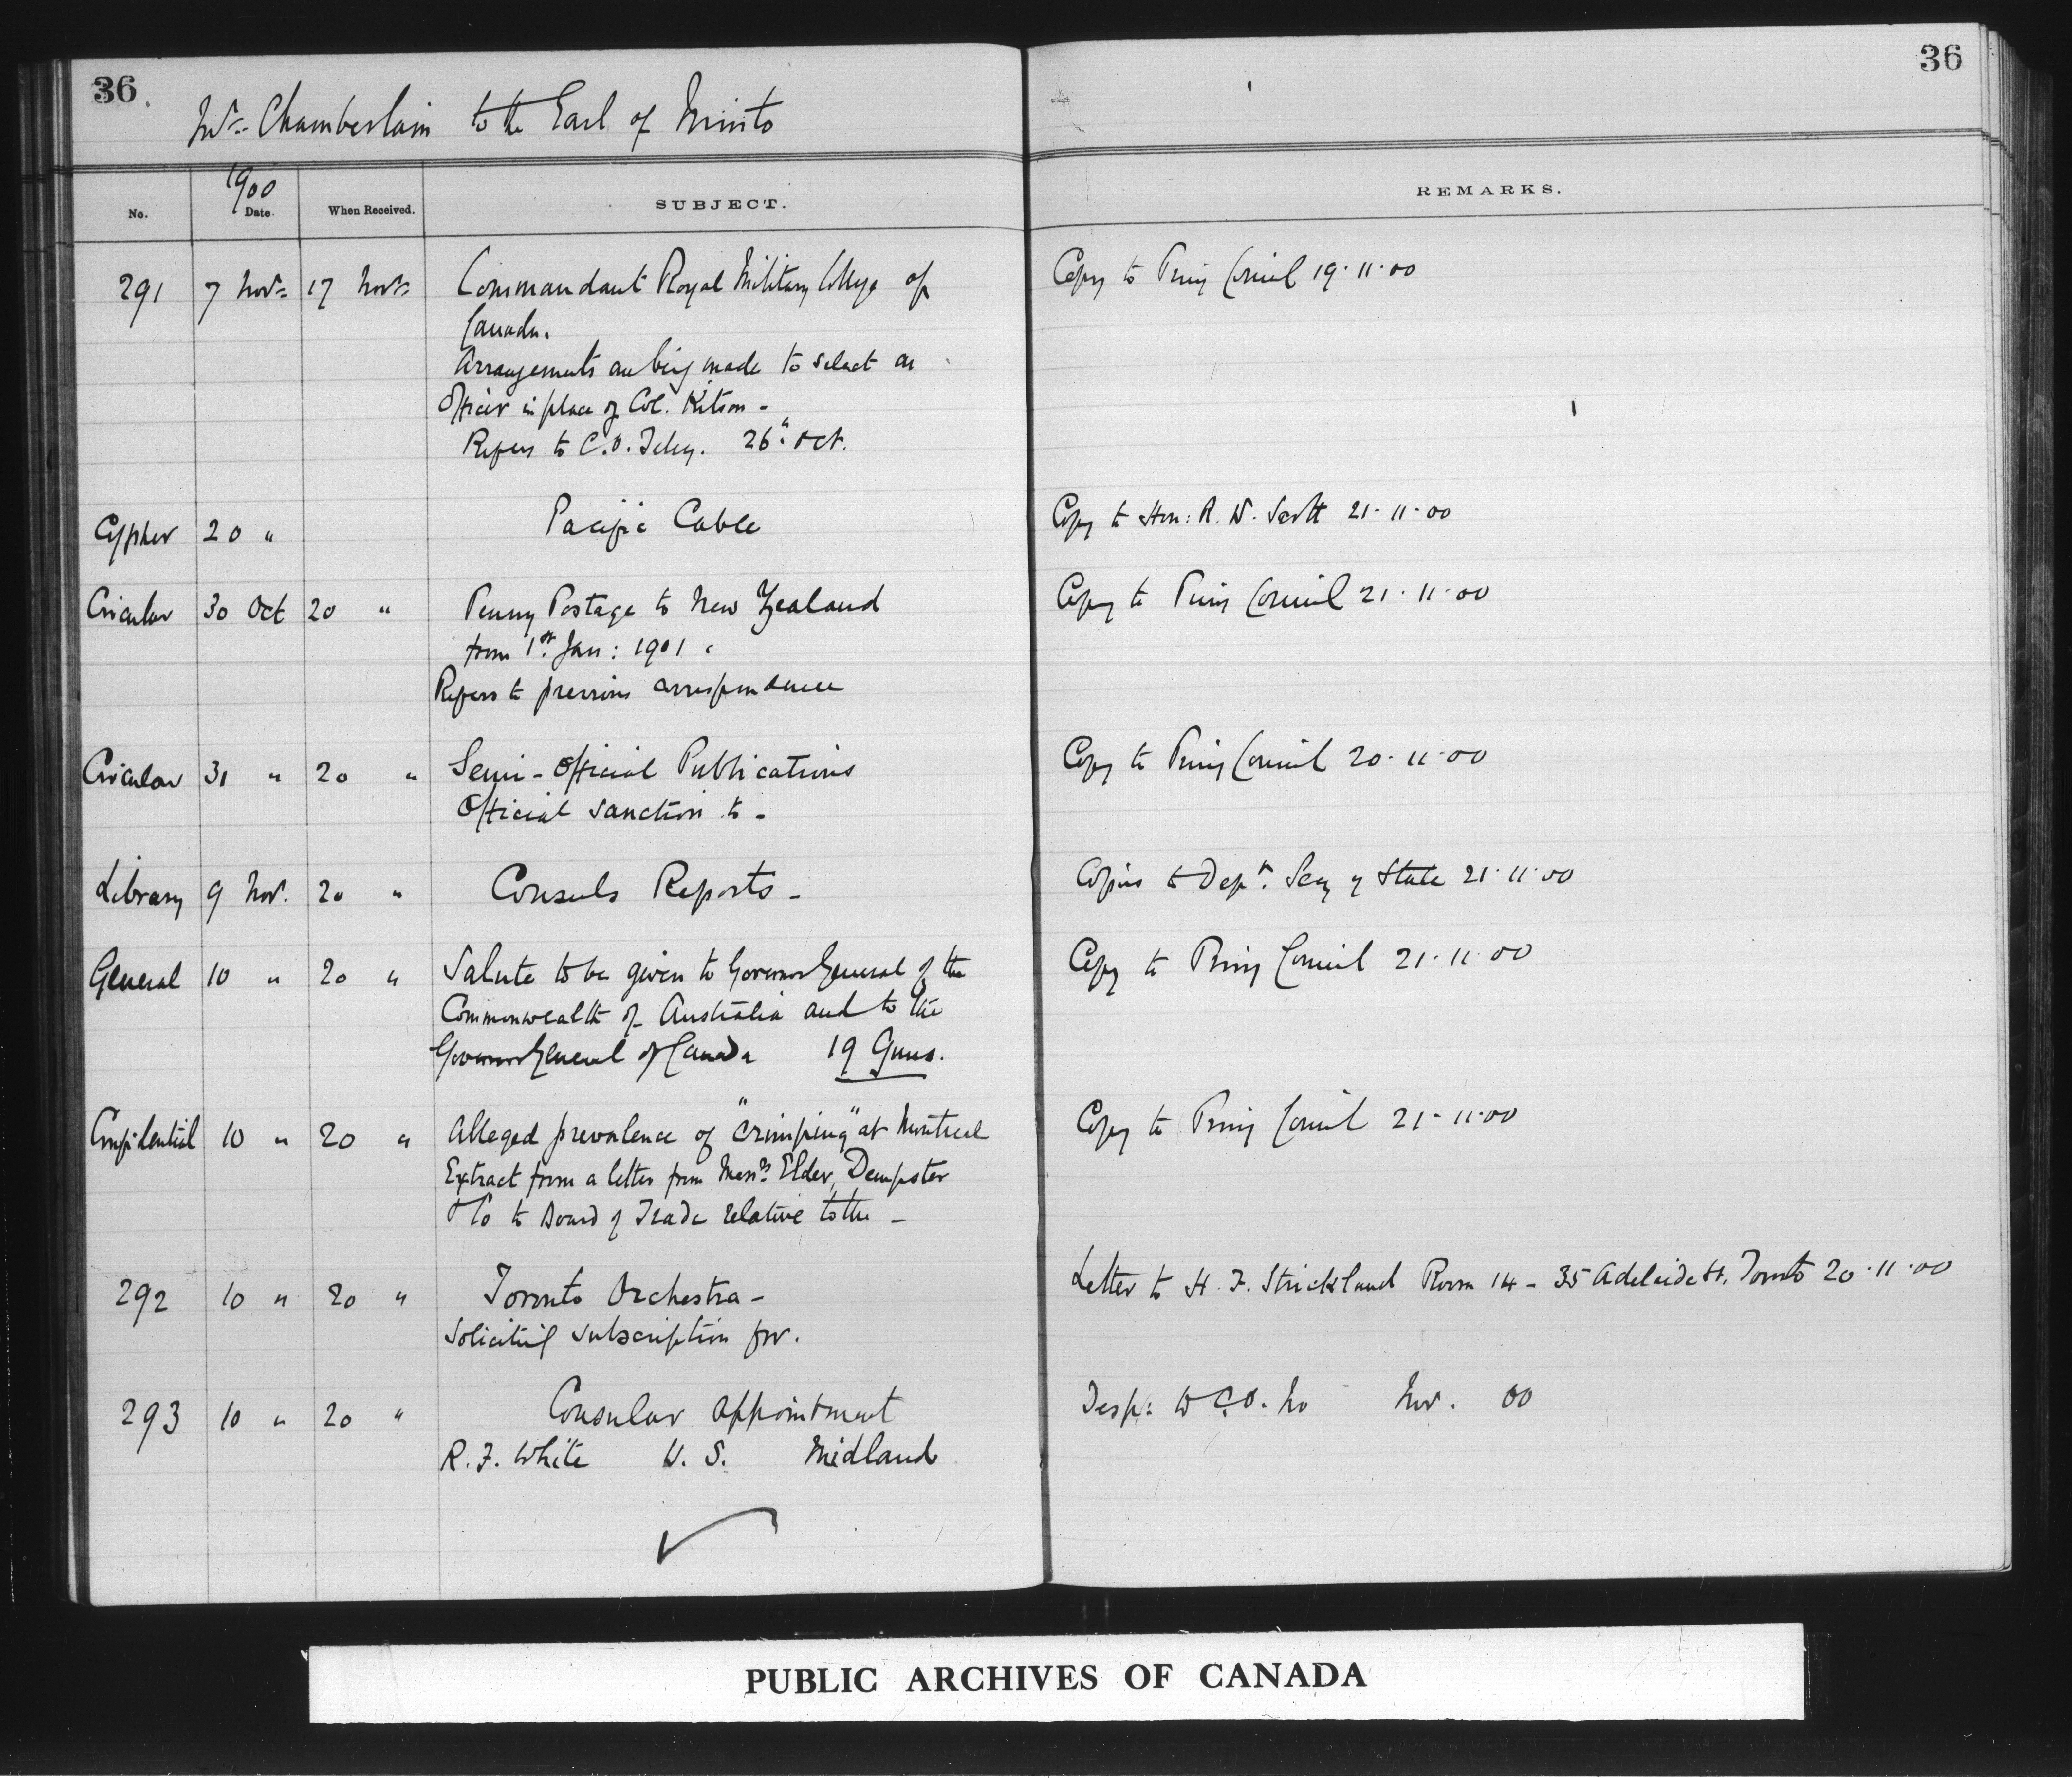 36.
36
Mr. Chamberlain to the Earl of Minto
1900
No. Date. When Received. SUBJECT. REMARKS.
291 7 Novr. 17 Novr. Commandant Royal Military College of Copy to Privy Council 19.11.00
Canada.
Arrangements are being made to select an
Officer in place of Col. Kitson -
Refers to C.O. Teleg. 26" Oct.
Cypher 20 " Pacific Cable Copy to Hon: R. W. Scott 21.11.00
Circular 30 Oct 20 " Penny Postage to New Zealand Copy to Privy Council 21.11.00
from 1st. Jan: 1901.
Refers to previous correspondence
Circular 31 " 20 " Semi-Official Publications Copy to Privy Council 20.11.00
Official sanction to -
Library 9 Nov. 20 " Consuls Reports - Copies to Dept. Secy of State 21.11.00
General 10 " 20 " Salute to be given to Governor General of the Copy to Privy Council 21.11.00
Commonwealth of Australia and to the
Governor General of Canada 19 Guns.
Confidential 10 " 20 " Alleged prevalence of "crimping" at Montreal Copy to Privy Council 21.11.00
Extract from a letter from Messrs. Elder, Dempster
& Co to Board of Trade relative to the -
292 10 " 20 " Toronto Orchestra - Letter to H. F. Strickland Room 14 - 35 Adelaide St. Toronto 20.11.00
Soliciting subscription for.
293 10 " 20 " Consular appointment Desp: to C.O. No Nov. 00
R. F. White U. S. Midland
PUBLIC ARCHIVES OF CANADA